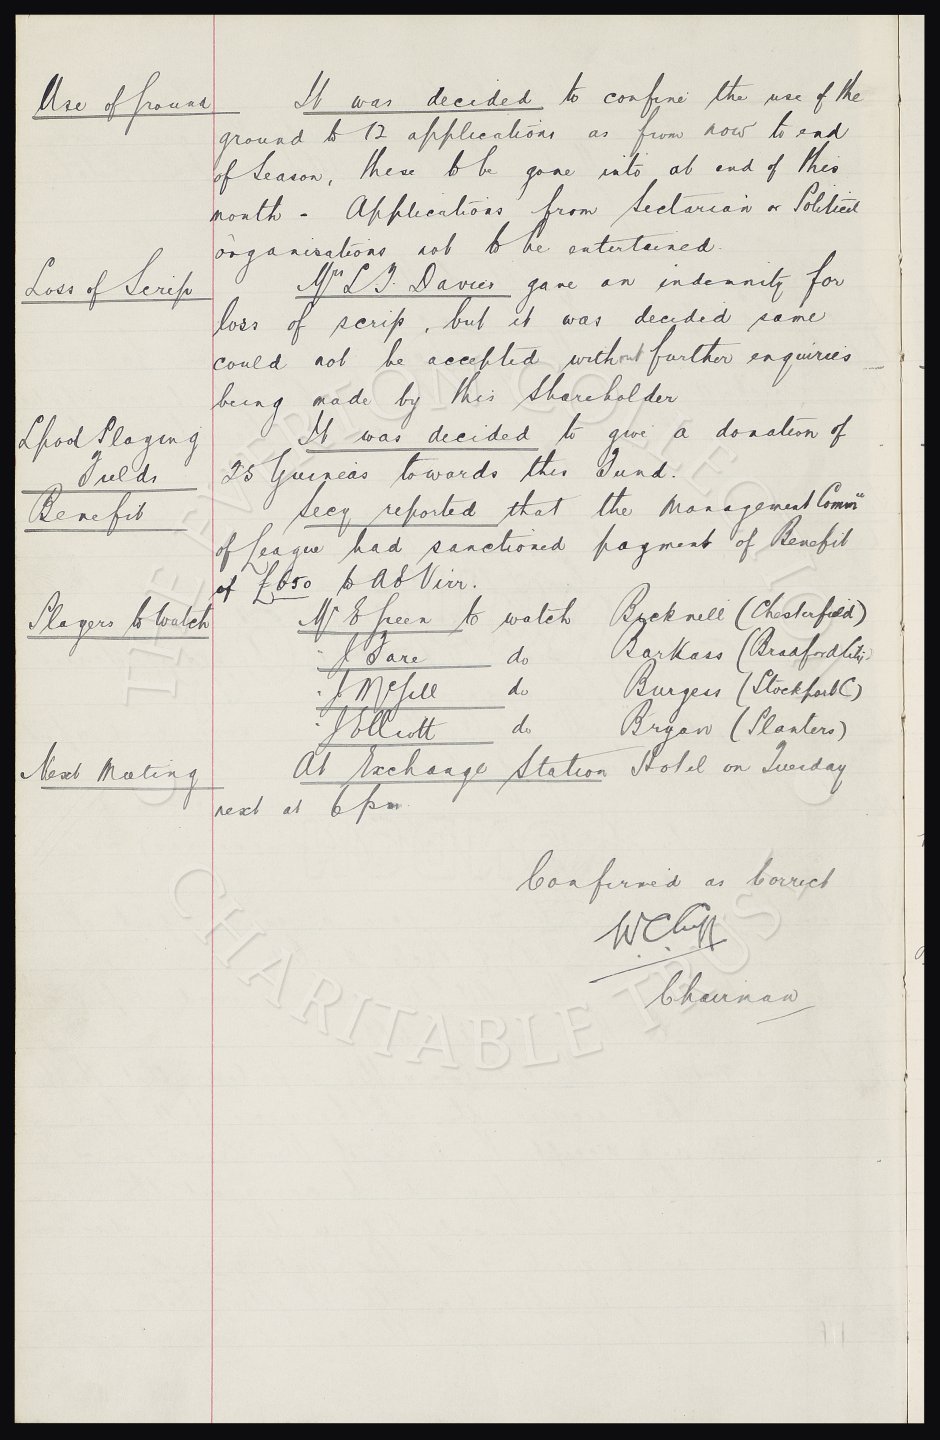 Use of Ground It was decided to confine the use of the
ground to 12 applications as from now to end
of Season, these to be gone into at end of this
month - Applications from Sectarian or Political
organisations not to be entertained.
Loss of Scrip Mrs L J. Davies gave an indemnity for
loss of scrip, but it was decided same
could not be accepted without further enquiries
being made by this Shareholder
Lpool Playing It was decided to give a donation of
Fields 25 Guineas towards this Fund.
Benefit Secy reported that the Management Commee
of League had sanctioned payment of Benefit
of £650 to A E Virr.
Players to Watch Mr E Green to watch Bucknell (Chesterfield)
" J Fare do Barkass (Bradford City)
" J McGill do Burgess (Stockport C)
" J Elliott do Bryan (Planters)
Next Meeting At Exchange Station Hotel on Tuesday
next at 6 pm.
Confirmed as Correct
W.C.Cuff
Chairman
THE EVERTON COLLECTION
CHARITABLE TRUST